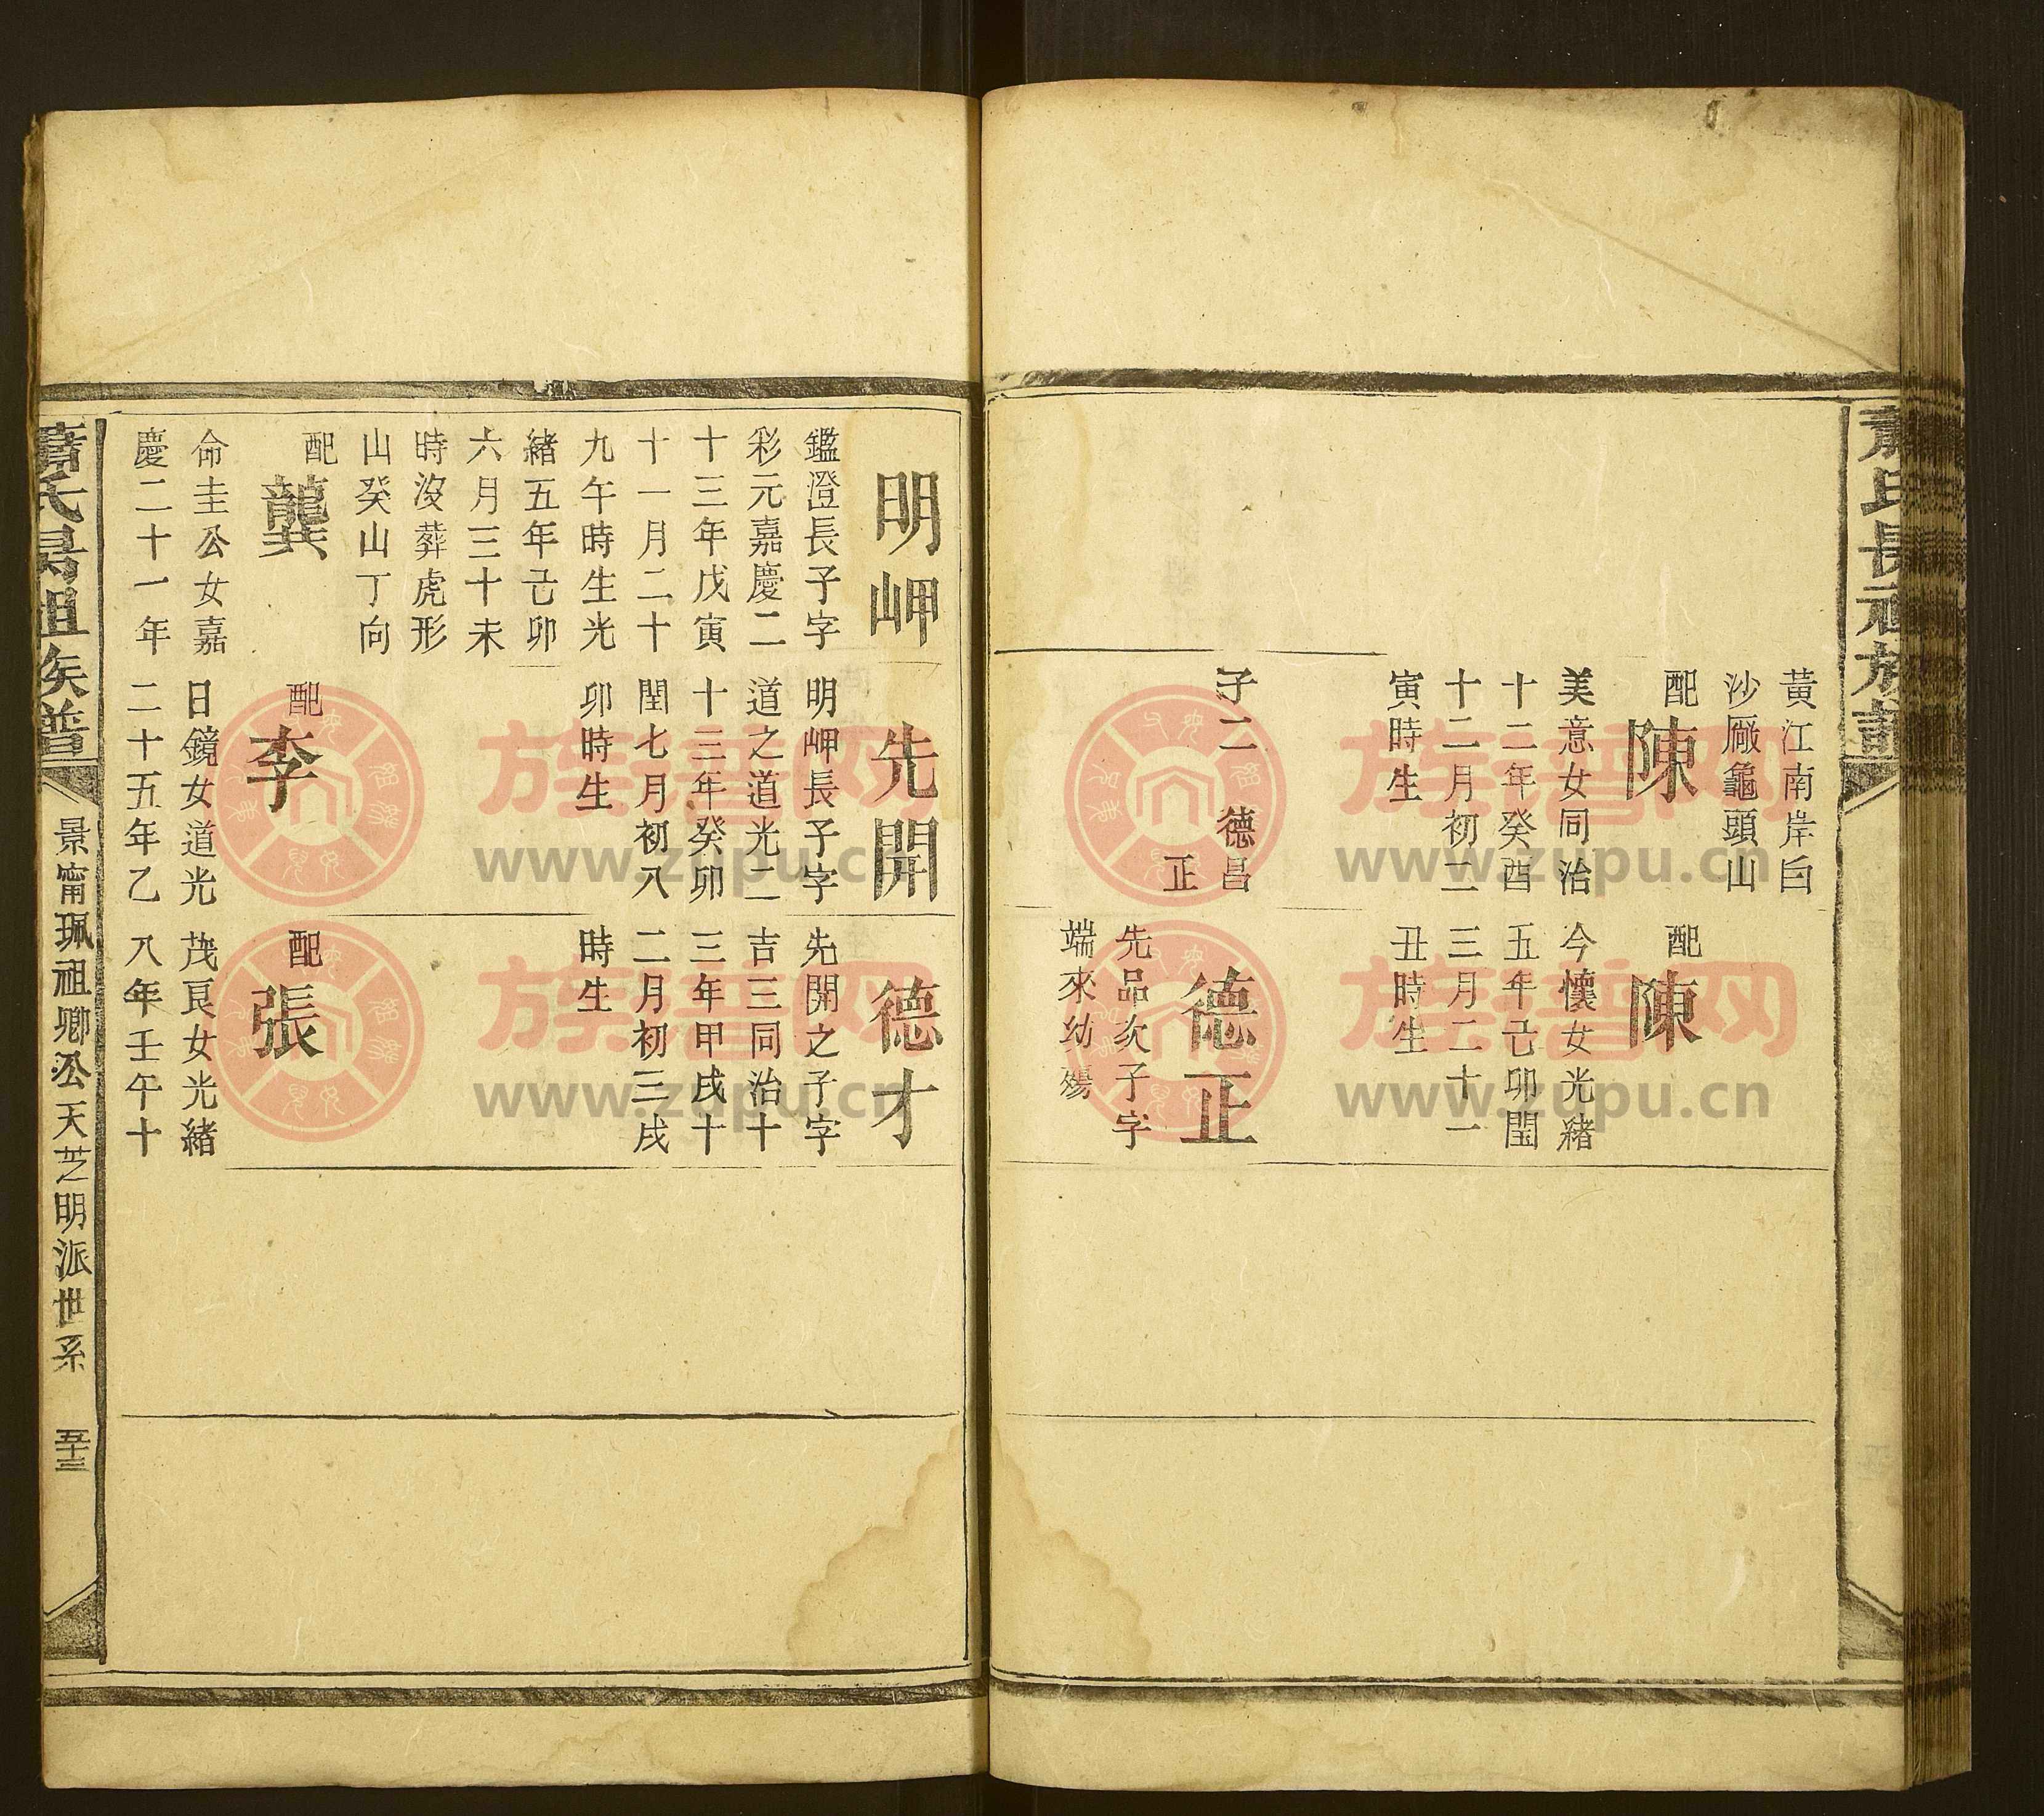 蕭氏長祖族譜
黃江南岸白
沙厰龜頭山
配
陳
美意女同治
十二年癸酉
十二月初二
寅時生
子二 德昌
正
配
陳
今懷女光緒
五年己卯閏
三月二十一
丑時生
德正
先品次子字
端來幼殤
明岬
鑑澄長子字
彩元嘉慶二
十三年戊寅
十一月二十
九午時生光
緒五年己卯
六月三十未
時沒葬虎形
山癸山丁向
配
龔
命圭公女嘉
慶二十一年
先開
明岬長子字
道之道光二
十三年癸卯
閏七月初八
卯時生
配
李
日鏡女道光
二十五年乙
德才
先開之子字
吉三同治十
三年甲戌十
二月初三戌
時生
配
張
茂良女光緒
八年壬午十
蕭氏長祖族譜
景甯珮祖卿公天芝明派世系
五十三
族譜网
www.zupu.cn
族譜网
www.zupu.cn
族譜网
www.zupu.cn
族譜网
www.zupu.cn